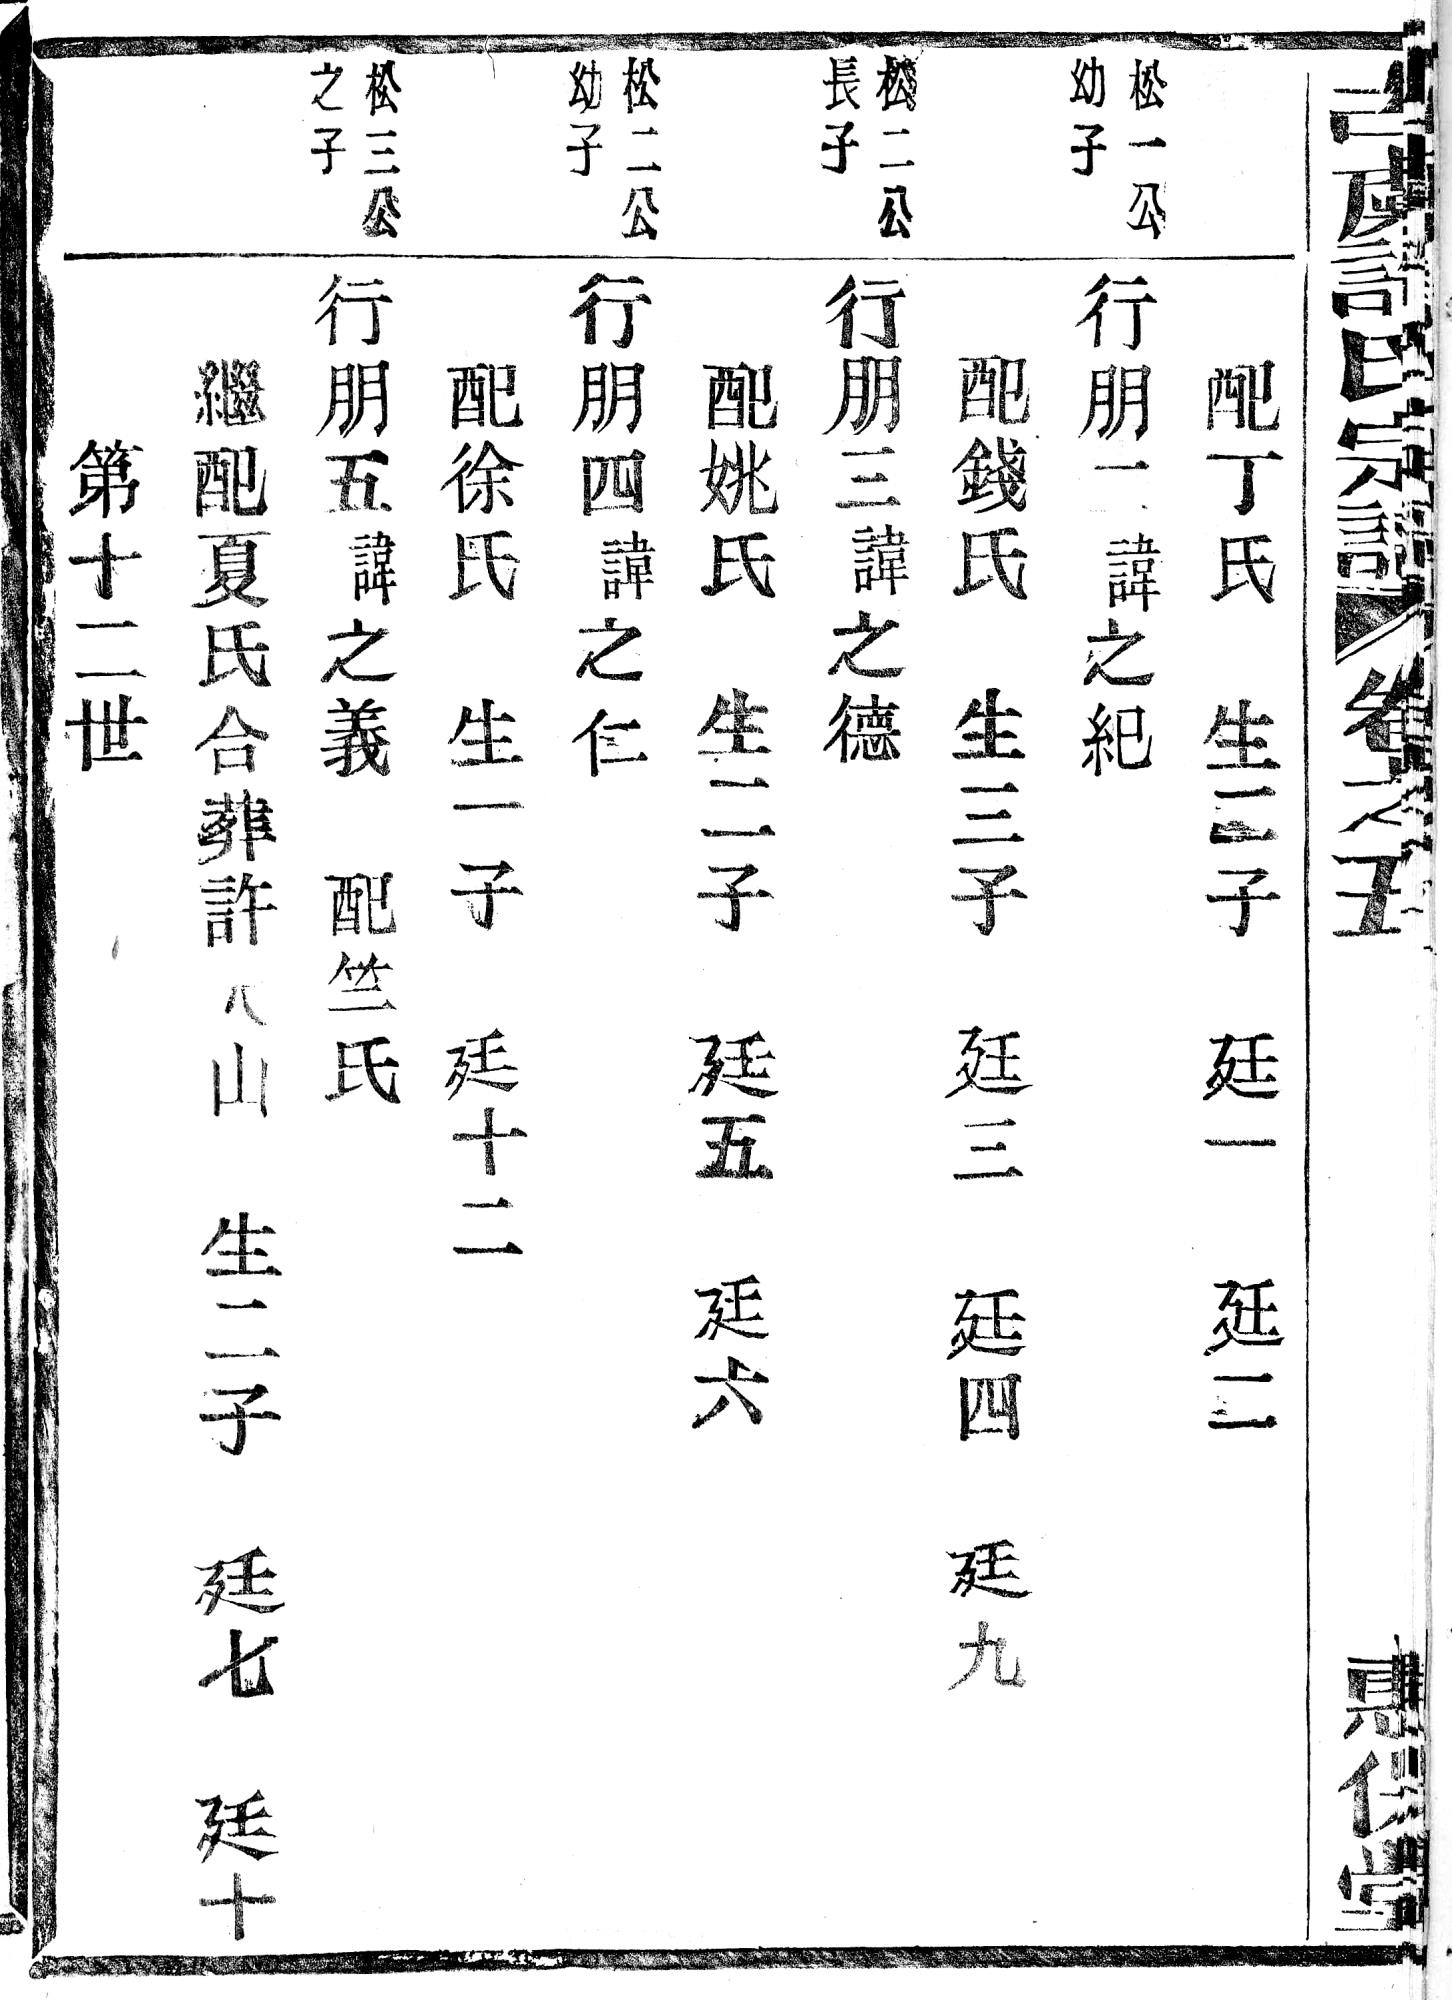 古虞許氏宗譜 卷之五 堂
配丁氏 生二子 廷一 廷二
松一公
幼子
行朋一諱之紀
配錢氏 生三子 廷三 廷四 廷九
松二公
長子
行朋三諱之德
配姚氏 生二子 廷五 廷六
松二公
幼子
行朋四諱之仁
配徐氏 生一子 廷十二
松三公
之子
行朋五諱之義 配竺氏
繼配夏氏合葬許山 生二子 廷七 廷十
第十二世